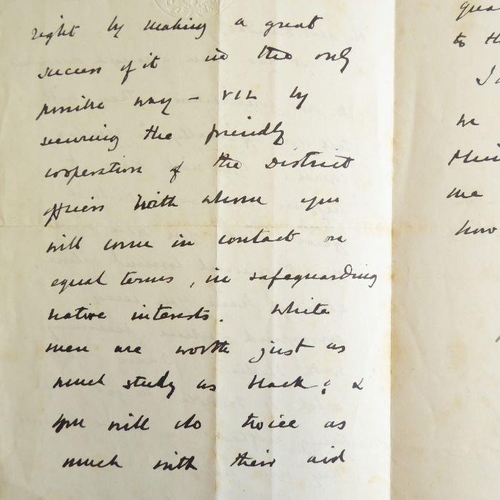 right by making a great
success of it in the only
possible way – viz by
securing the friendly
cooperation of the District
officers with whom you
will come in contact on
equal terms, in safeguarding
native interests. White
men are worth just as
much study as black; &
you will do twice as
much with their aid
to th
we
me
how